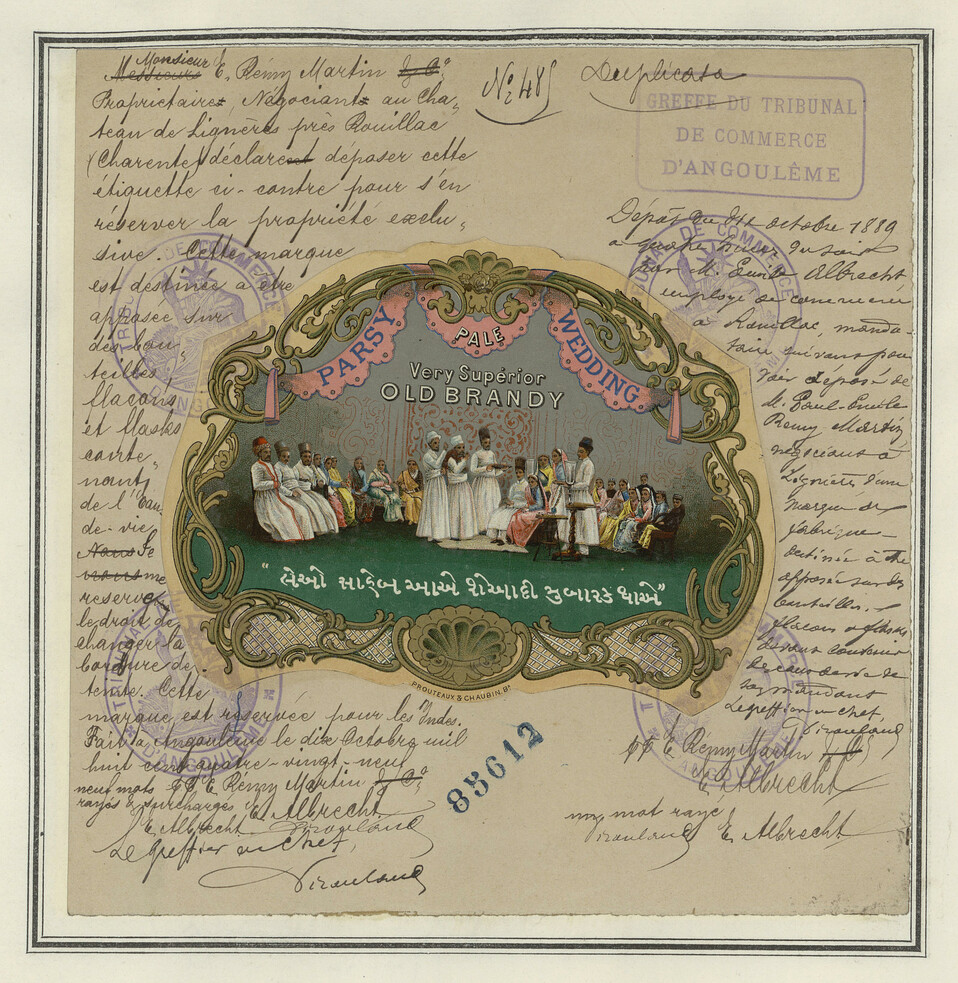 Monsieur
Messieurs E. Rémy Martin & Co
Propriétaires, Négociants au Châ-
teau de Lignères près Rouillac
(Charente) déclarent déposer cette
étiquette ci-contre pour s'en
réserver la propriété exclu-
sive. Cette marque
est destinée à être
apposée sur
des bou-
teilles,
flacons
et flasks
conte-
nant
de l'Eau
de-vie
Nous Se
vous me
réserve
le droit de
changer la
bordure de
teinte. Cette
marque est réservée pour les Indes.
Fait à Angoulême le dix Octobre mil
huit cent quatre-vingt-neuf
neuf mots pp E. Rémy Martin & Co
rayés & surchargés E. Albrecht
E. Albrecht
Le greffier en chef,
No 485
Duplicata
GREFFE DU TRIBUNAL
DE COMMERCE
D'ANGOULÊME
Dépôt du octobre 1889
à quatre heures du soir
par M. Albrecht
employé de commerce
à Rouillac, manda-
taire suivant pou-
voir déposé de
M. Paul-Emile
Remy Martin
négociant à
Lignères d'une
marque de
fabrique
destinée à être
apposée sur des
bouteilles
flacons & flasks
devant contenir
les eaux de vie de
son mandant
Le greffier en chef,
pp E. Rémy Martin & Co
E. Albrecht
un mot rayé
E. Albrecht
PARSY
PALE
WEDDING
Very Supérior
OLD BRANDY
"લેઓ સાહેબ આએ શેઆદી મુબારક થાએ"
PROUTEAUX & CHAUBIN, Bx
85612
TRIBUNAL DE COMMERCE
D'ANGOULÊME